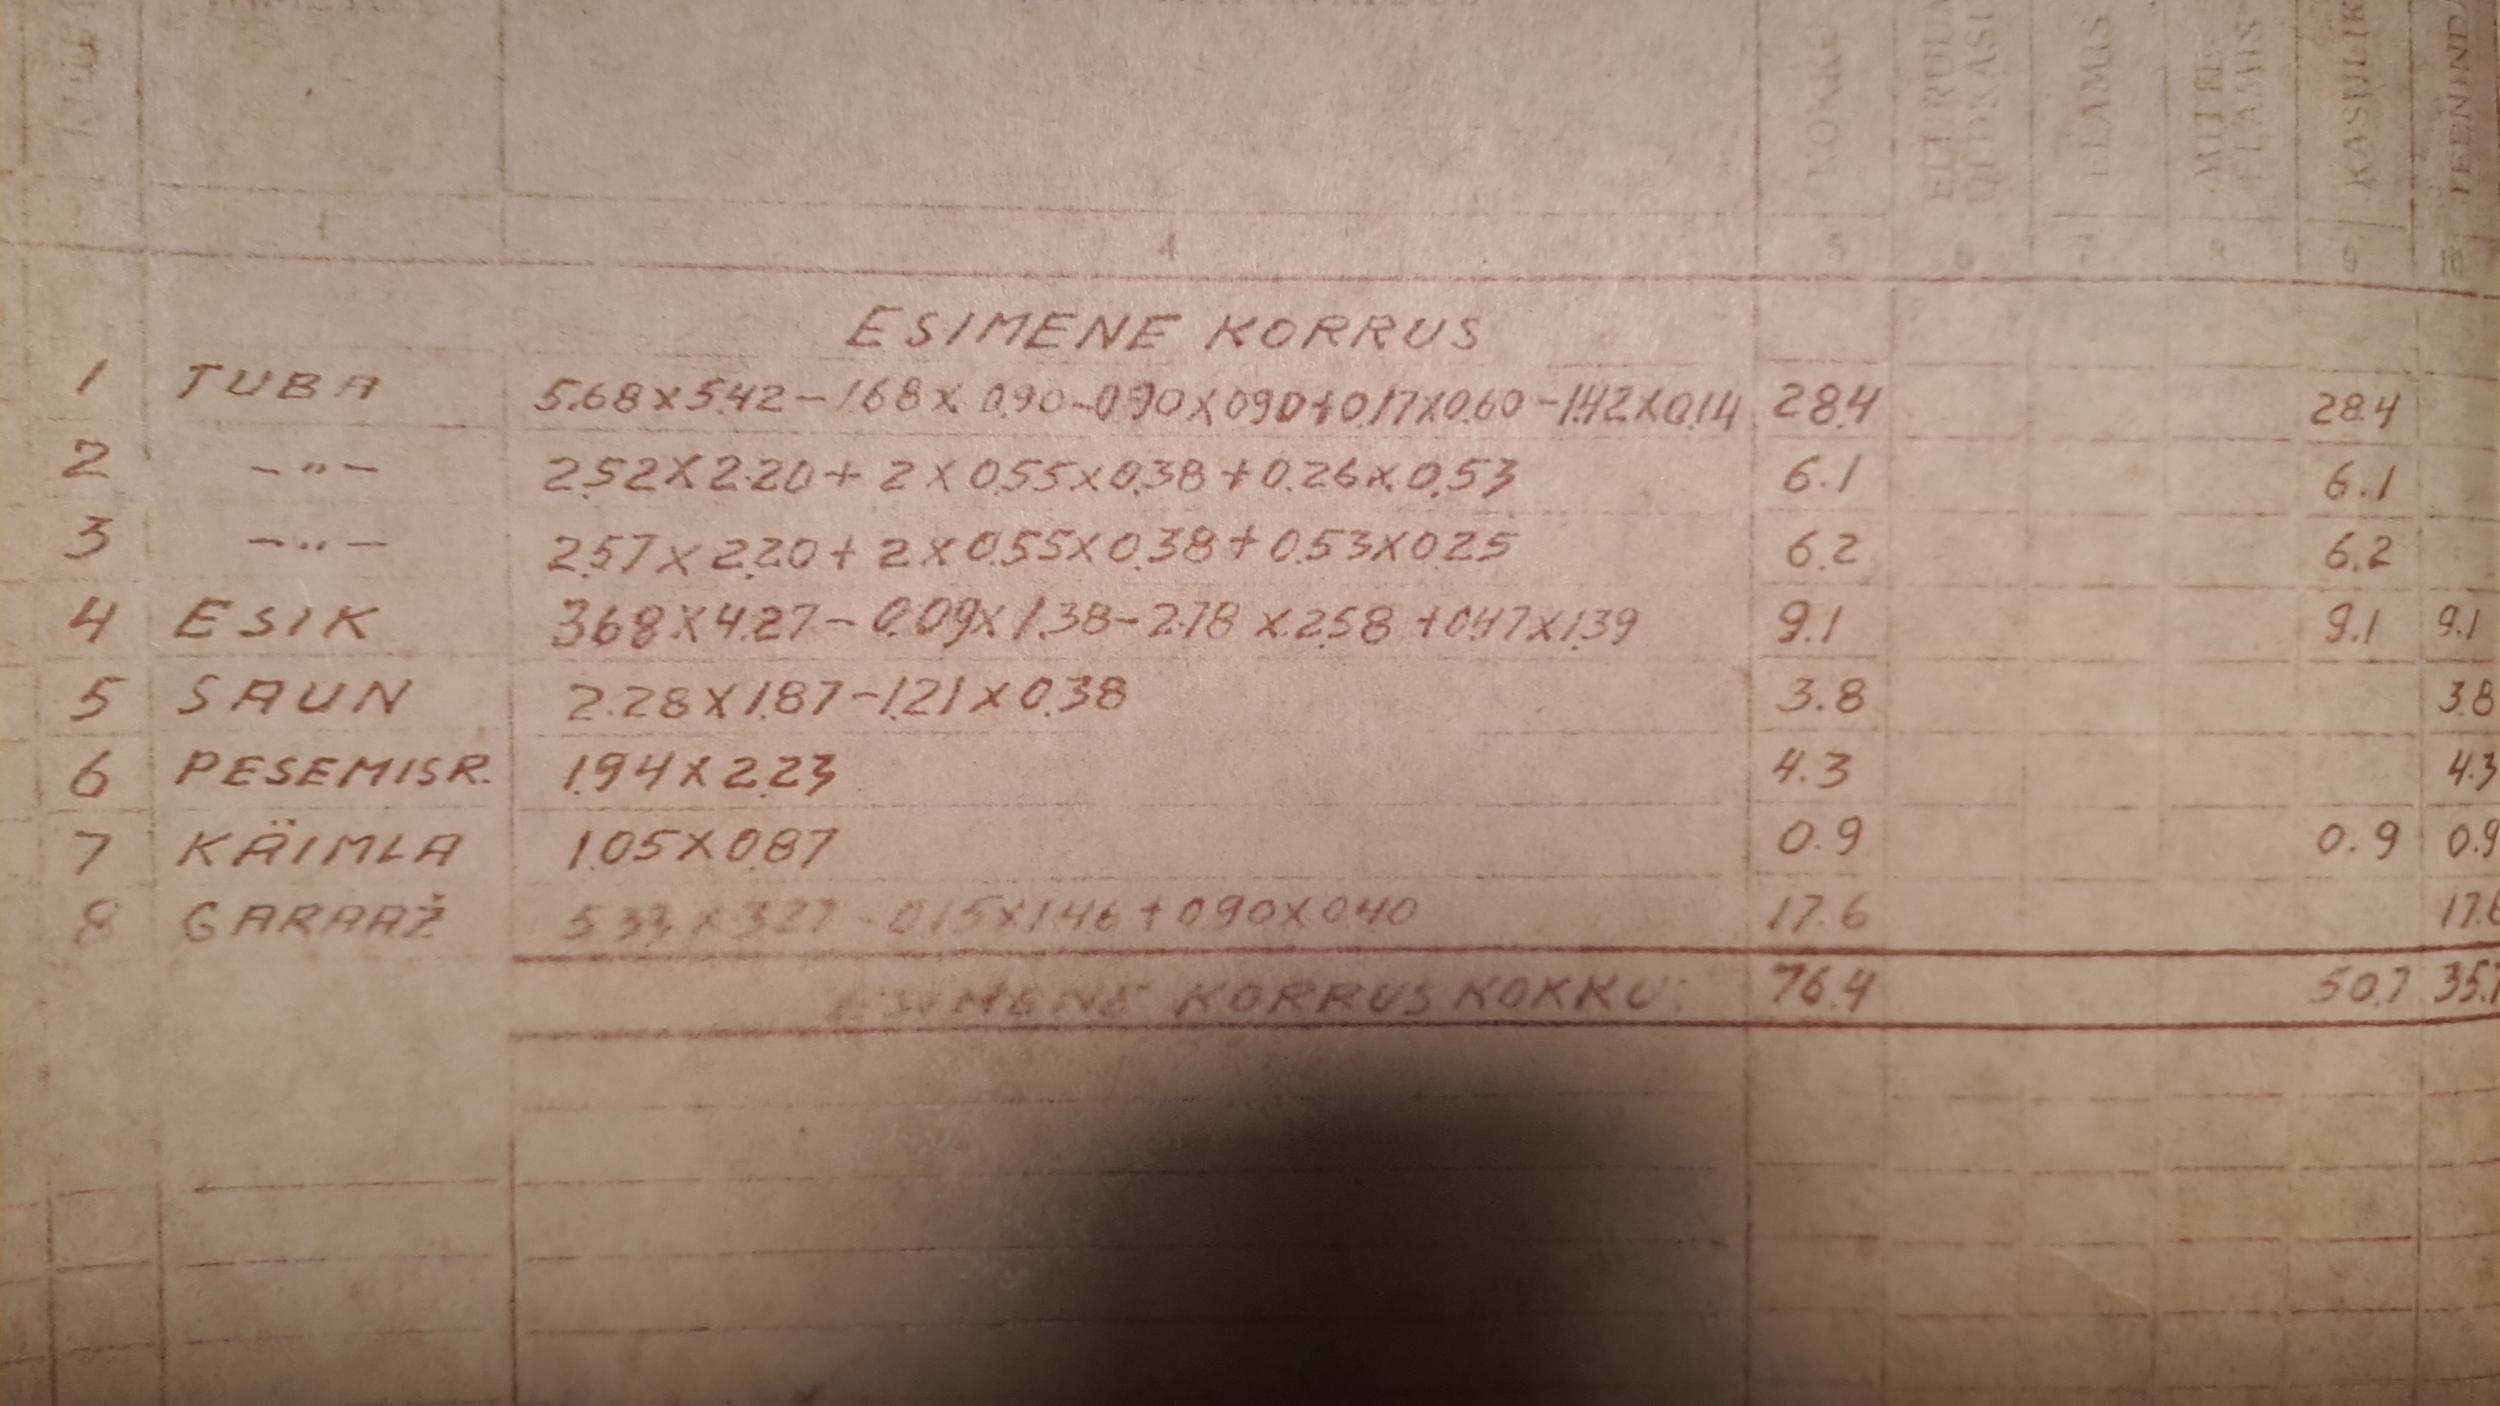 KOKKU
ELURUUM
ÜLDKASU
ELAMIS
MITTE-
ELAMIS
KASULIK
TEENIND
4 5 6 7 8 9 10
ESIMENE KORRUS
1 TUBA 5.68x5.42-1.68x0.90-0.90x0.90+0.17x0.60-1.42x0.14 28.4 28.4
2 -"- 2.52x2.20+2x0.55x0.38+0.26x0.53 6.1 6.1
3 -"- 2.57x2.20+2x0.55x0.38+0.53x0.25 6.2 6.2
4 ESIK 3.68x4.27-0.09x1.38-2.78x2.58+0.47x1.39 9.1 9.1 9.1
5 SAUN 2.28x1.87-1.21x0.38 3.8 3.8
6 PESEMISR. 1.94x2.23 4.3 4.3
7 KÄIMLA 1.05x0.87 0.9 0.9 0.9
8 GARAAŽ 5.33x3.27-0.15x1.46+0.90x0.40 17.6 17.6
ESIMENE KORRUS KOKKU: 76.4 50.7 35.7